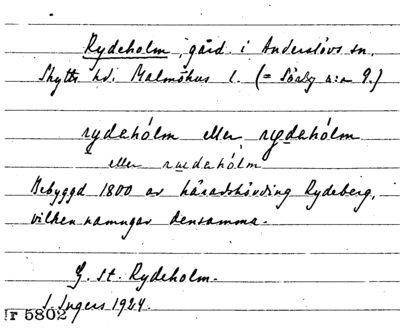 Rydeholm, gård i Anderslövs sn.
Skytts hd. Malmöhus l. (= Sörby n:o 9.)
rydəhólm eller rydəhólm
eller rudəhólm
Bebyggd 1800 av häradshövding Rydeberg,
vilken namngav densamma.
G. st. Rydeholm.
I. Ingers 1924.
r 5802